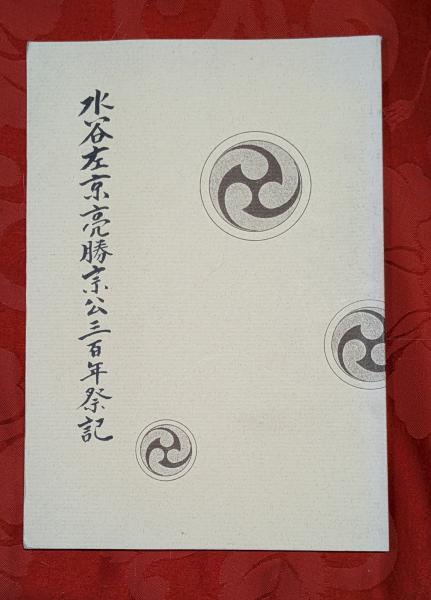 水谷左京亮勝宗公三百年祭記